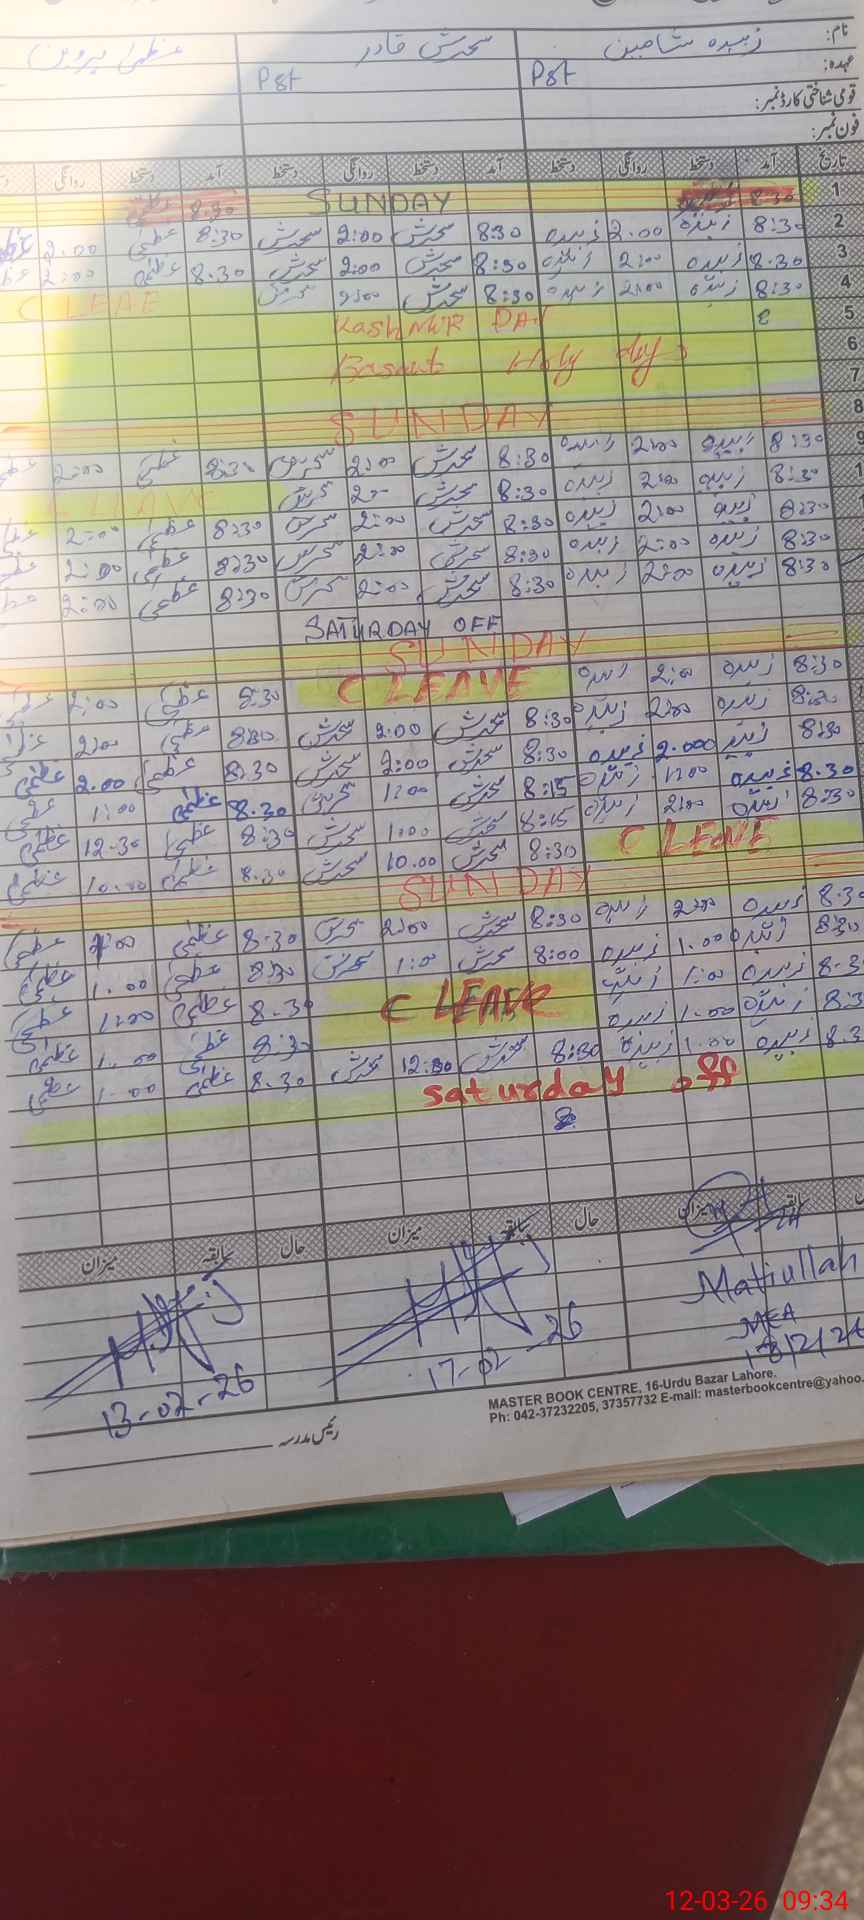 نام: زبیدہ شاہین سحرش قادر عظمیٰ پروین
عہدہ: PST PST
قومی شناختی کارڈ نمبر:
فون نمبر:
تاریخ آمد دستخط روانگی دستخط آمد دستخط روانگی دستخط آمد دستخط روانگی
1 8:30 SUNDAY 8:30
2 8:30 زبیدہ 2.00 زبیدہ 8:30 سحرش 2:00 سحرش 8:30 عظمیٰ 2.00
3 8.30 زبیدہ 2:00 زبیدہ 8:30 سحرش 2:00 سحرش 8.30 عظمیٰ 2:00
4 8:30 زبیدہ 2:00 زبیدہ 8:30 سحرش 2:00 سحرش C LEAE
5 KASHMIR DAY
6 Basant Holy days
7
8 SUNDAY
9 8:30 زبیدہ 2:00 زبیدہ 8:30 سحرش 2:00 سحرش 8:30 عظمیٰ 2:00
8:30 زبیدہ 2:00 زبیدہ 8:30 سحرش سحرش LEAVE
8:30 زبیدہ 2:00 زبیدہ 8:30 سحرش 2:00 سحرش 8:30 عظمیٰ 2:00
8:30 زبیدہ 2:00 زبیدہ 8:30 سحرش 2:00 سحرش 8:30 عظمیٰ 2:00
8:30 زبیدہ 2:00 زبیدہ 8:30 سحرش 2:00 سحرش 8:30 عظمیٰ 2:00
SATURDAY OFF
SUNDAY
8:30 زبیدہ 2:00 زبیدہ C LEAVE 8:30 عظمیٰ 2:00 عظمیٰ
8:30 زبیدہ 2:00 زبیدہ 8:30 سحرش 2:00 سحرش 8:30 عظمیٰ 2:00
8:30 زبیدہ 2.000 زبیدہ 8:30 سحرش 2:00 سحرش 8.30 عظمیٰ 2.00 عظمیٰ
8.30 زبیدہ 1:00 زبیدہ 8:15 سحرش 1:00 سحرش 8.30 عظمیٰ 1:00 عظمیٰ
8:30 زبیدہ 2:00 زبیدہ 8:15 سحرش 1:00 سحرش 8:30 عظمیٰ 12.30 عظمیٰ
C LEAVE 8:30 سحرش 10.00 سحرش 8.30 عظمیٰ 10.00 عظمیٰ
SUNDAY
8.30 زبیدہ 2:00 زبیدہ 8:30 سحرش 2:00 سحرش 8.30 عظمیٰ عظمیٰ
8:30 زبیدہ 1.00 زبیدہ 8:00 سحرش 1:00 سحرش 8:30 عظمیٰ 1.00 عظمیٰ
8.3 زبیدہ 1:00 زبیدہ C LEAVE 8.30 عظمیٰ 1:00 عظمیٰ
8.3 زبیدہ 1.00 زبیدہ 8:30 عظمیٰ 1.00 عظمیٰ
8.3 زبیدہ 1.00 زبیدہ 8:30 سحرش 12:30 سحرش 8.30 عظمیٰ 1.00 عظمیٰ
saturday off
سابقہ میزان حال سابقہ میزان حال سابقہ میزان
Matiullah
MEA
13/2/26
17-02-26
13-02-26
MASTER BOOK CENTRE, 16-Urdu Bazar Lahore.
Ph: 042-37232205, 37357732 E-mail: masterbookcentre@yahoo.
رئیس مدرسہ
12-03-26 09:34